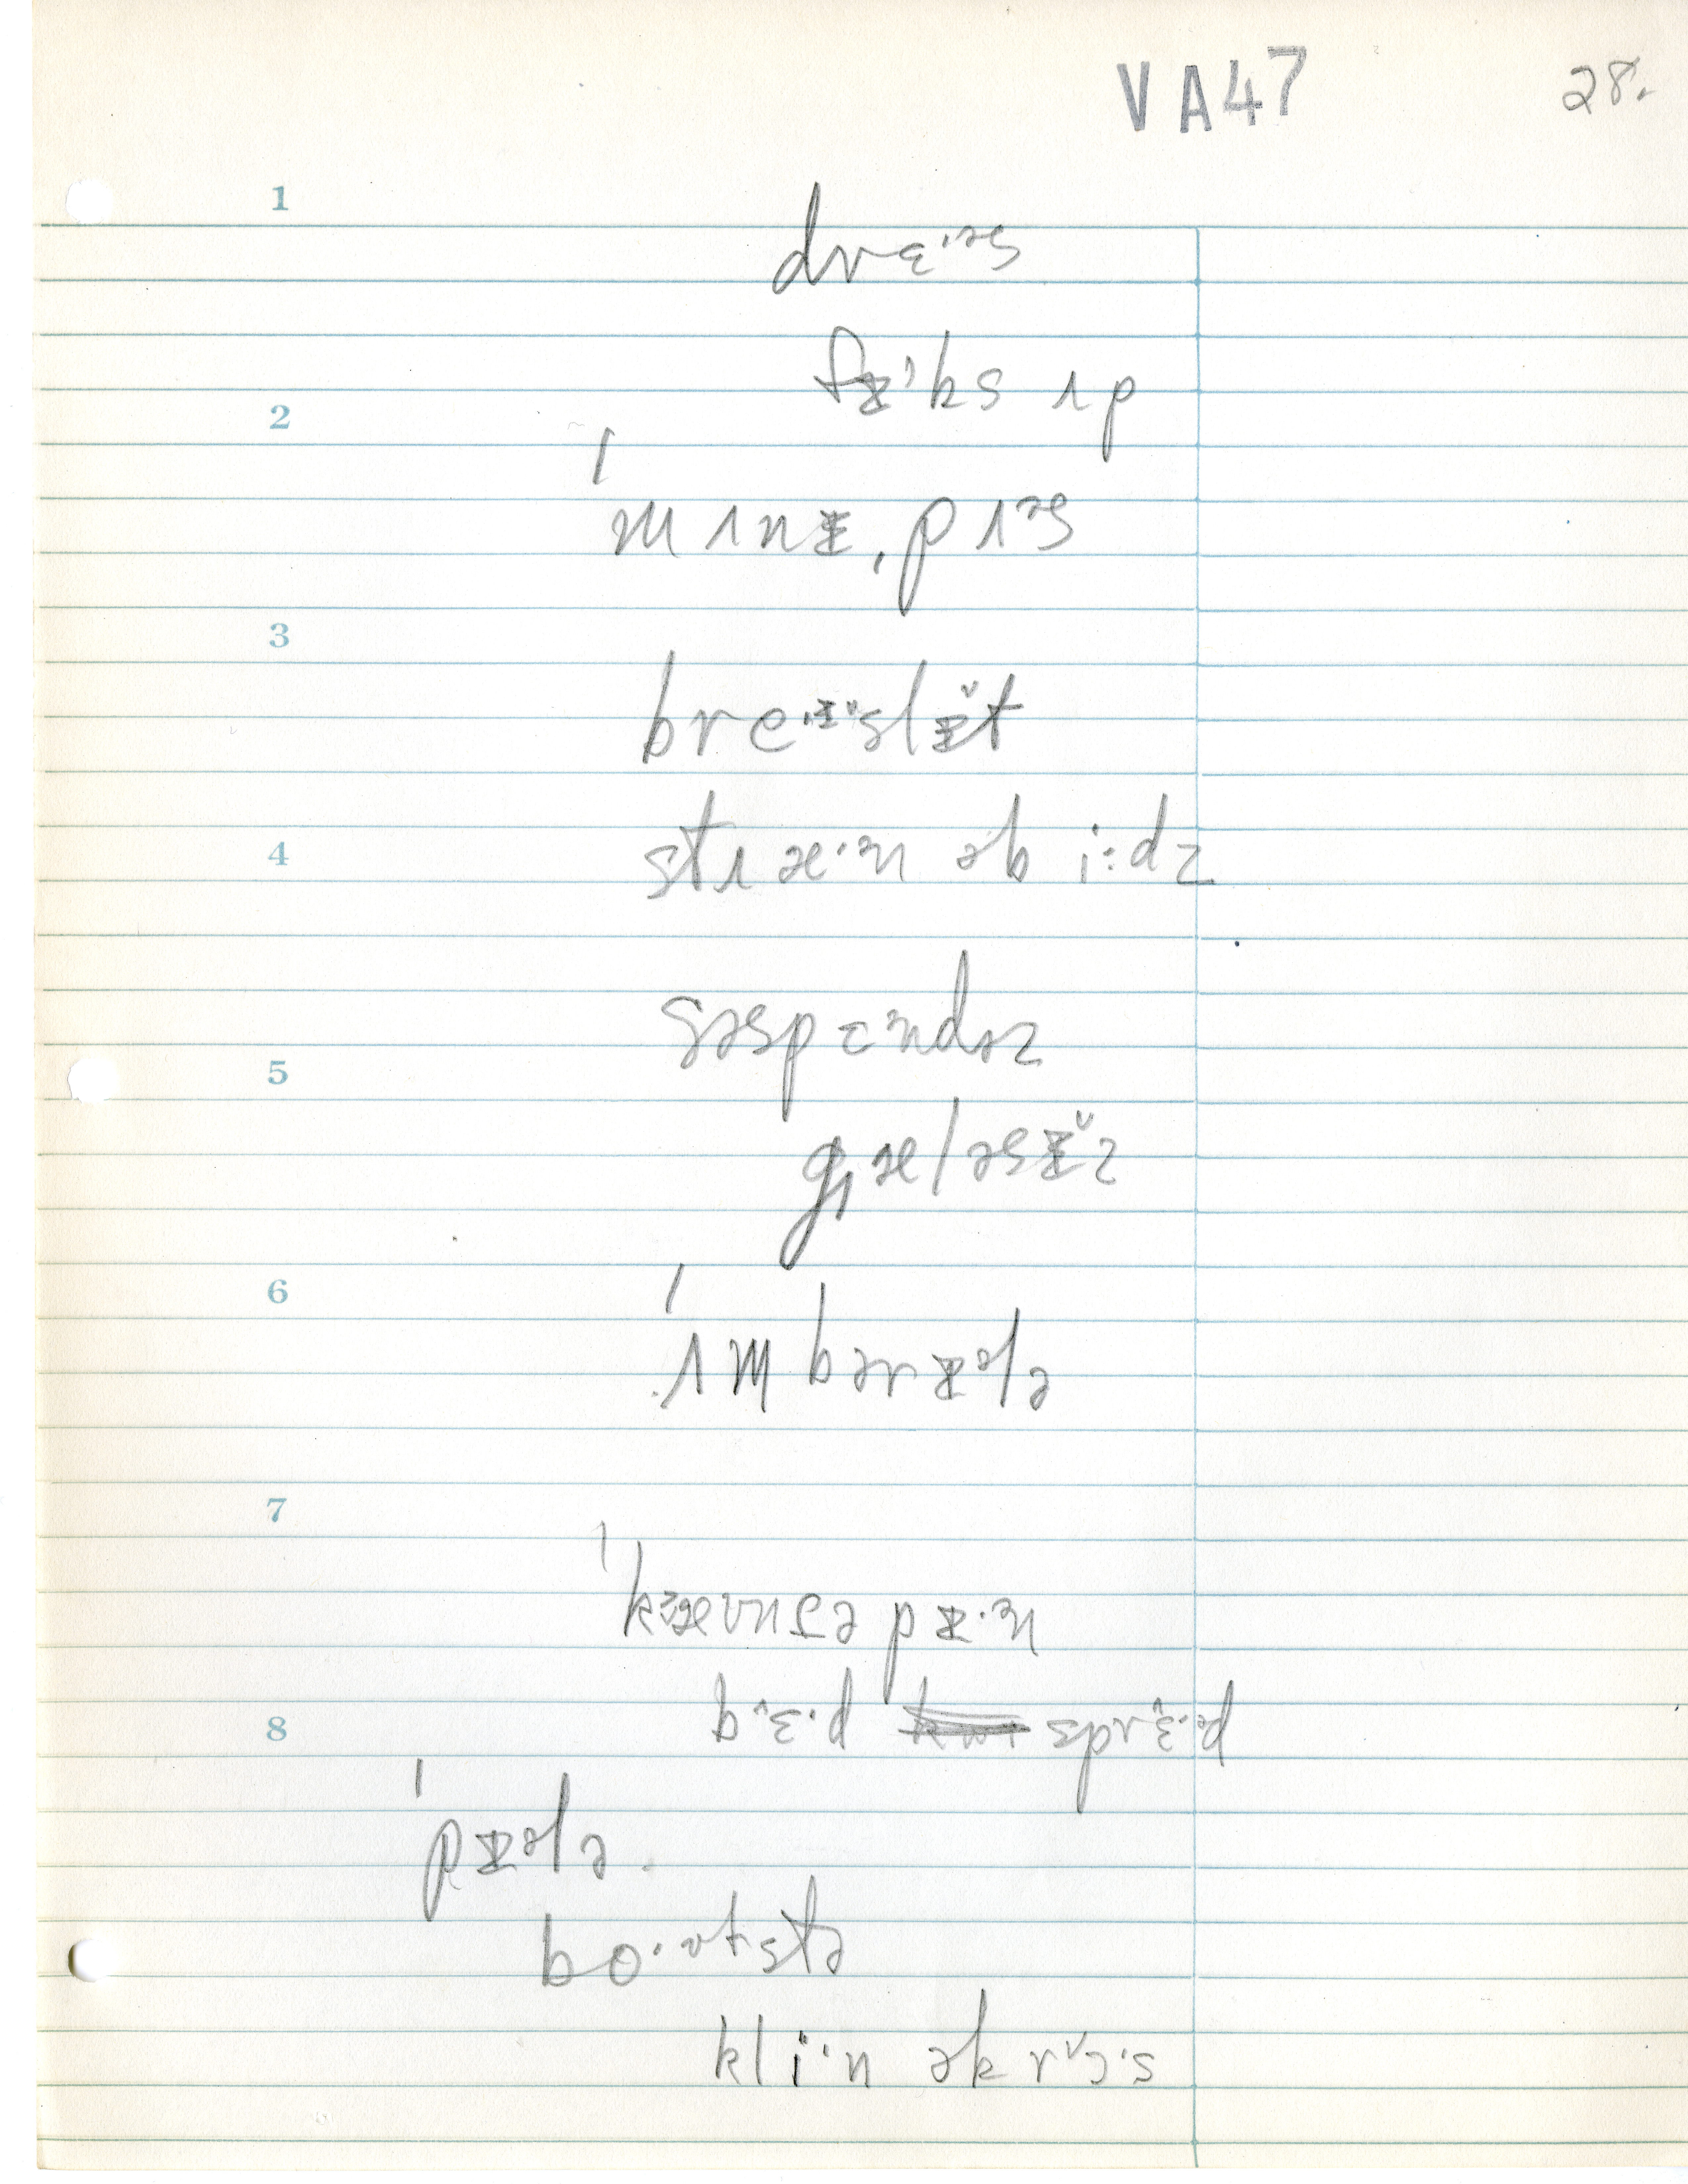 VA47 28.
1
drɛ·ᵊs
fɪ̵'ks ʌp
2
ˈmʌnɪ̵ˌpʌᵊs
3
bre·ɪ̵̆slɪ̵̆t
4
stɹæ·ᵊn əb i:dz
səspɛᵊndəz
5
gɹæləsɪ̵̆z
6
ˈʌmbərɪ̵ᵊlə
7
pɪ̵·ᵊn
8
bᵊɛ·d sprᵊɛ·ᵊd
ˈpɪ̵ᵊlə.
bo·ᶷtstə
kli·n əkrɔ̆·s